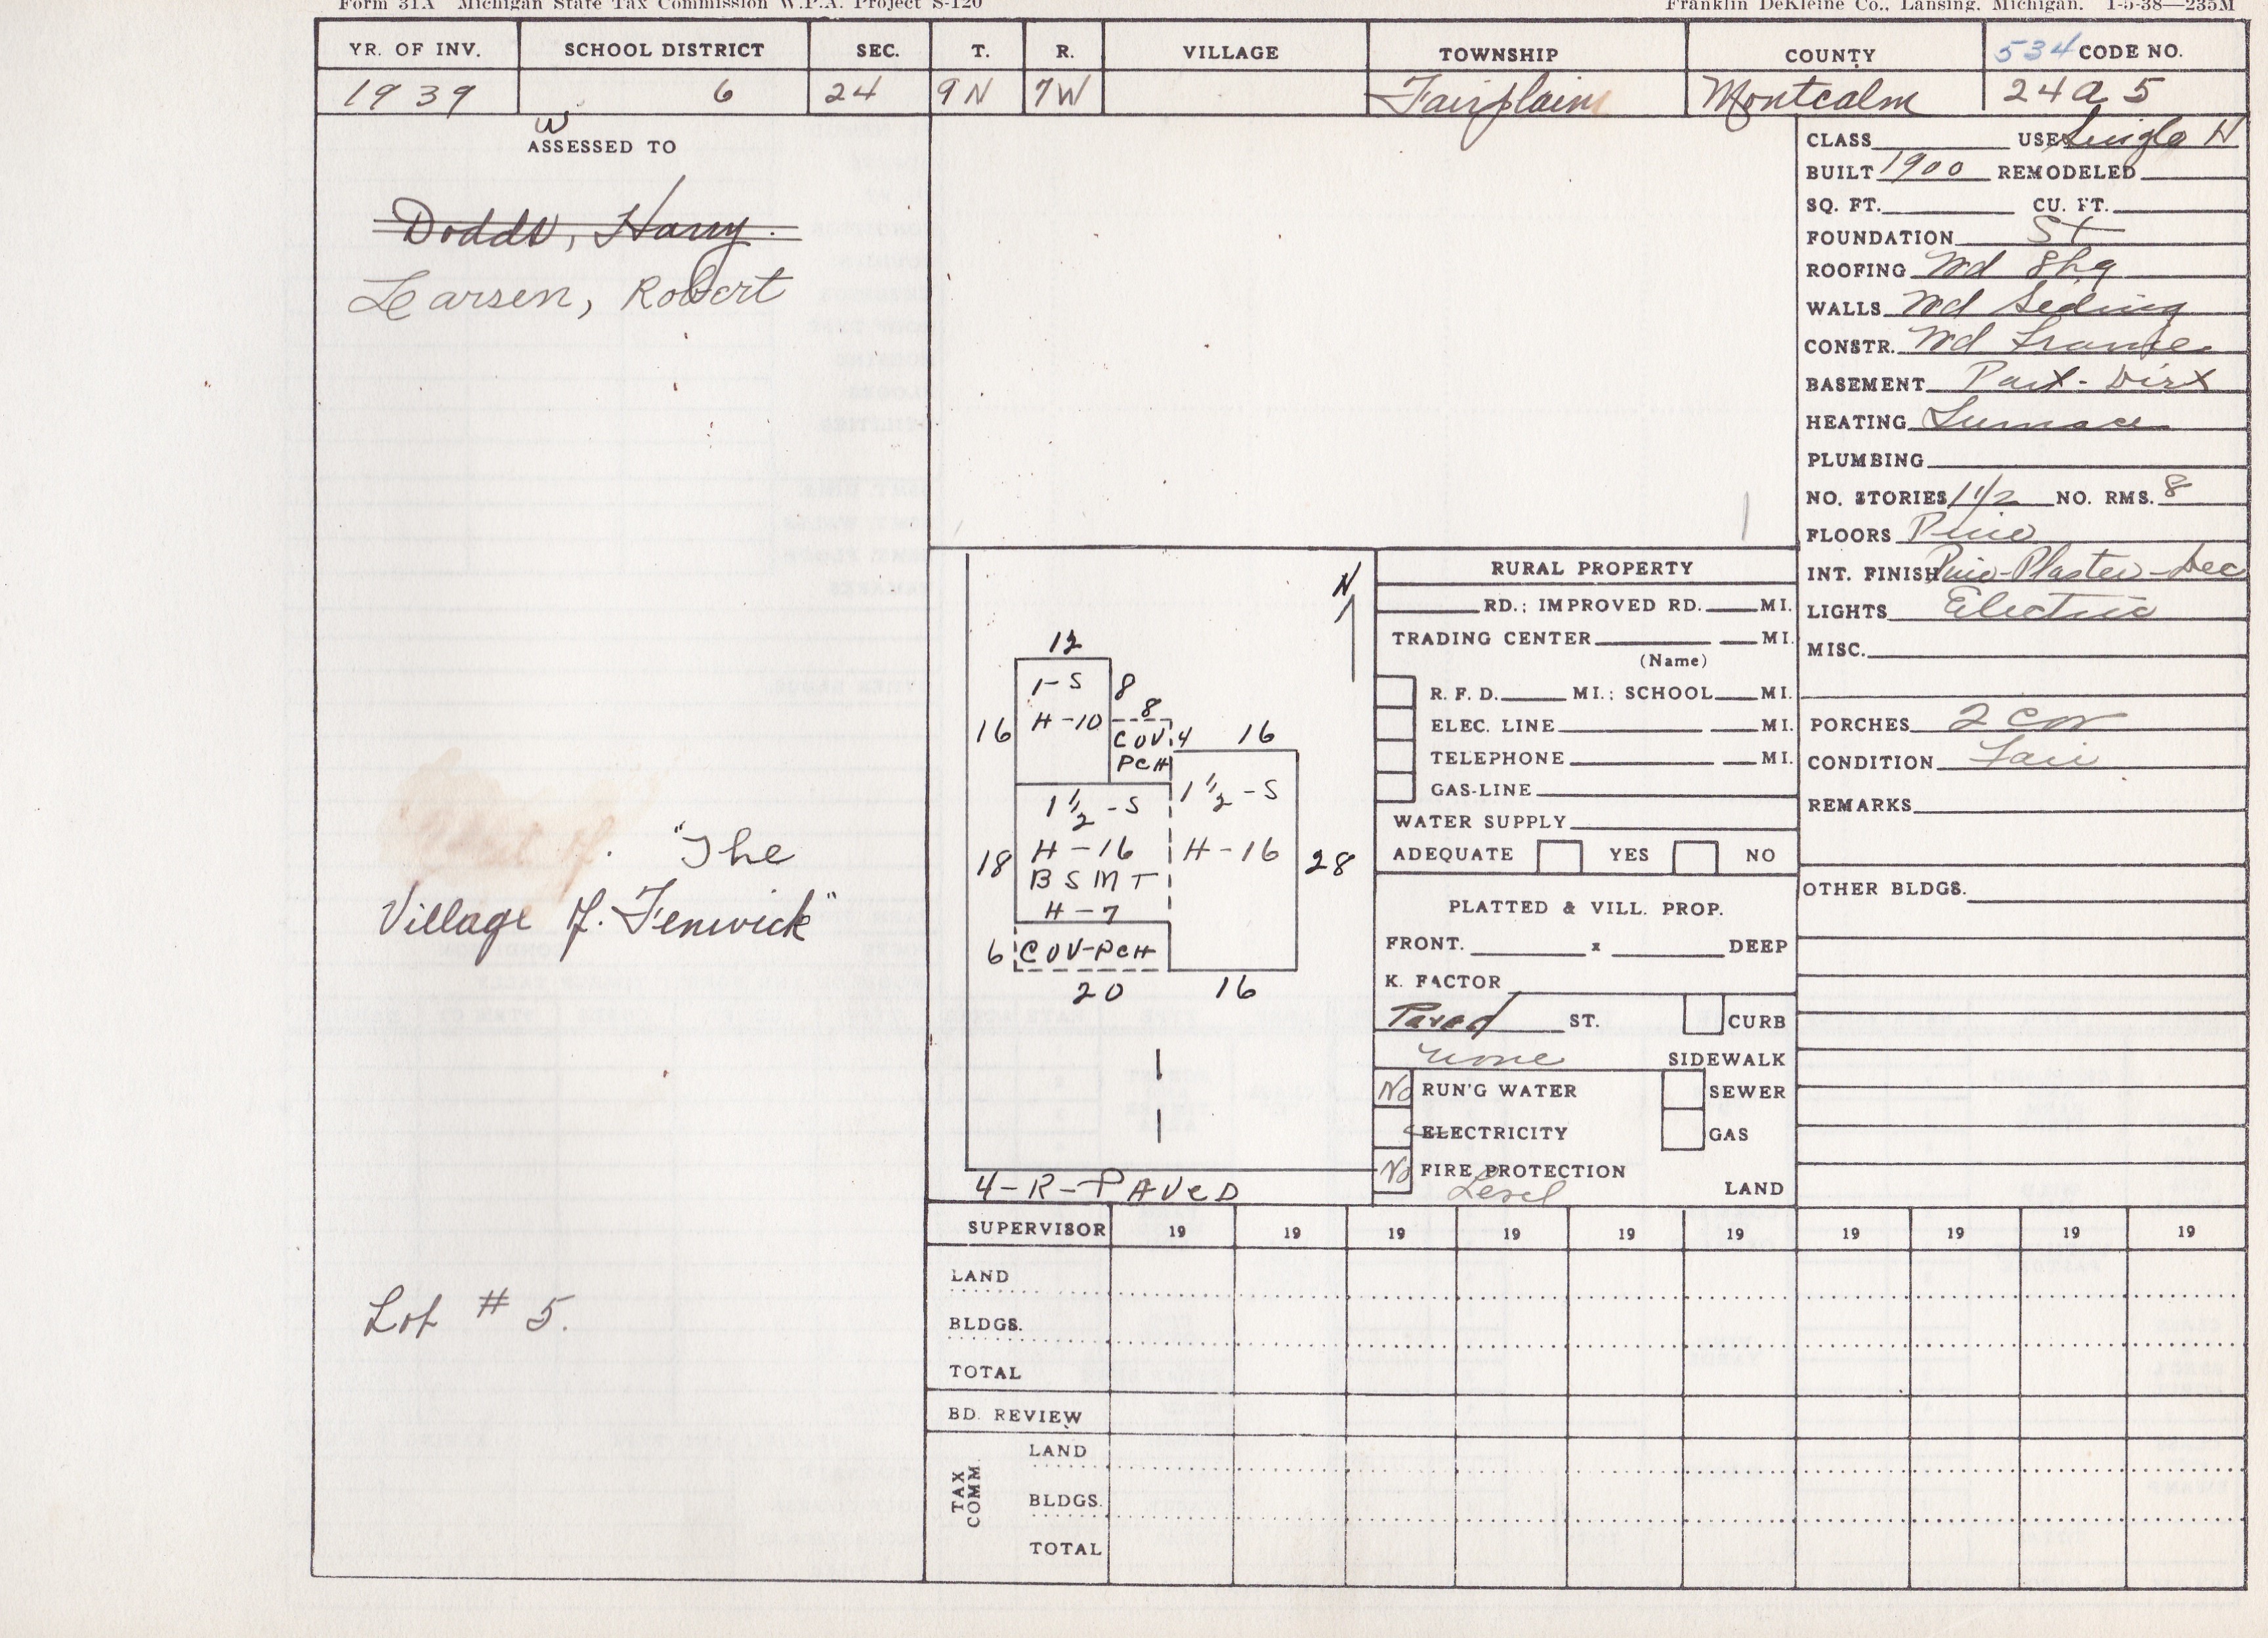 Form 31A Michigan State Tax Commission W.P.A. Project S-120
Franklin DeKleine Co., Lansing, Michigan. 1-5-38—235M
YR. OF INV. SCHOOL DISTRICT SEC. T. R. VILLAGE TOWNSHIP COUNTY 534 CODE NO.
1939 6 24 9N 7W Fairplains Montcalm 24 a 5
W
ASSESSED TO
Dodds, Harry.
Larsen, Robert
"The
Village of Fenwick"
Lot # 5.
CLASS USE Single H
BUILT 1900 REMODELED
SQ. FT. CU. FT.
FOUNDATION St
ROOFING Wd Shg
WALLS Wd Siding
CONSTR. Wd Frame
BASEMENT Part - Dirt
HEATING Furnace
PLUMBING
NO. STORIES 1 1/2 NO. RMS. 8
FLOORS Pine
INT. FINISH Pine-Plaster-Dec
LIGHTS Electric
MISC.
PORCHES 2 Cov
CONDITION Fair
REMARKS
OTHER BLDGS.
N
12
1-S
H-10
8
8
16
COV.
PCH
4
16
1 1/2 -S
H-16
BSMT
H-7
18
1 1/2 -S
H-16
28
6
COV-PCH
20
16
4-R-PAVED
RURAL PROPERTY
RD.; IMPROVED RD. MI.
TRADING CENTER MI.
(Name)
R. F. D. MI.; SCHOOL MI.
ELEC. LINE MI.
TELEPHONE MI.
GAS-LINE
WATER SUPPLY
ADEQUATE YES NO
PLATTED & VILL. PROP.
FRONT. x DEEP
K. FACTOR
Paved ST. CURB
None SIDEWALK
No RUN'G WATER SEWER
ELECTRICITY GAS
No FIRE PROTECTION
Level LAND
SUPERVISOR 19 19 19 19 19 19 19 19 19 19
LAND
BLDGS.
TOTAL
BD. REVIEW
TAX COMM.
LAND
BLDGS.
TOTAL